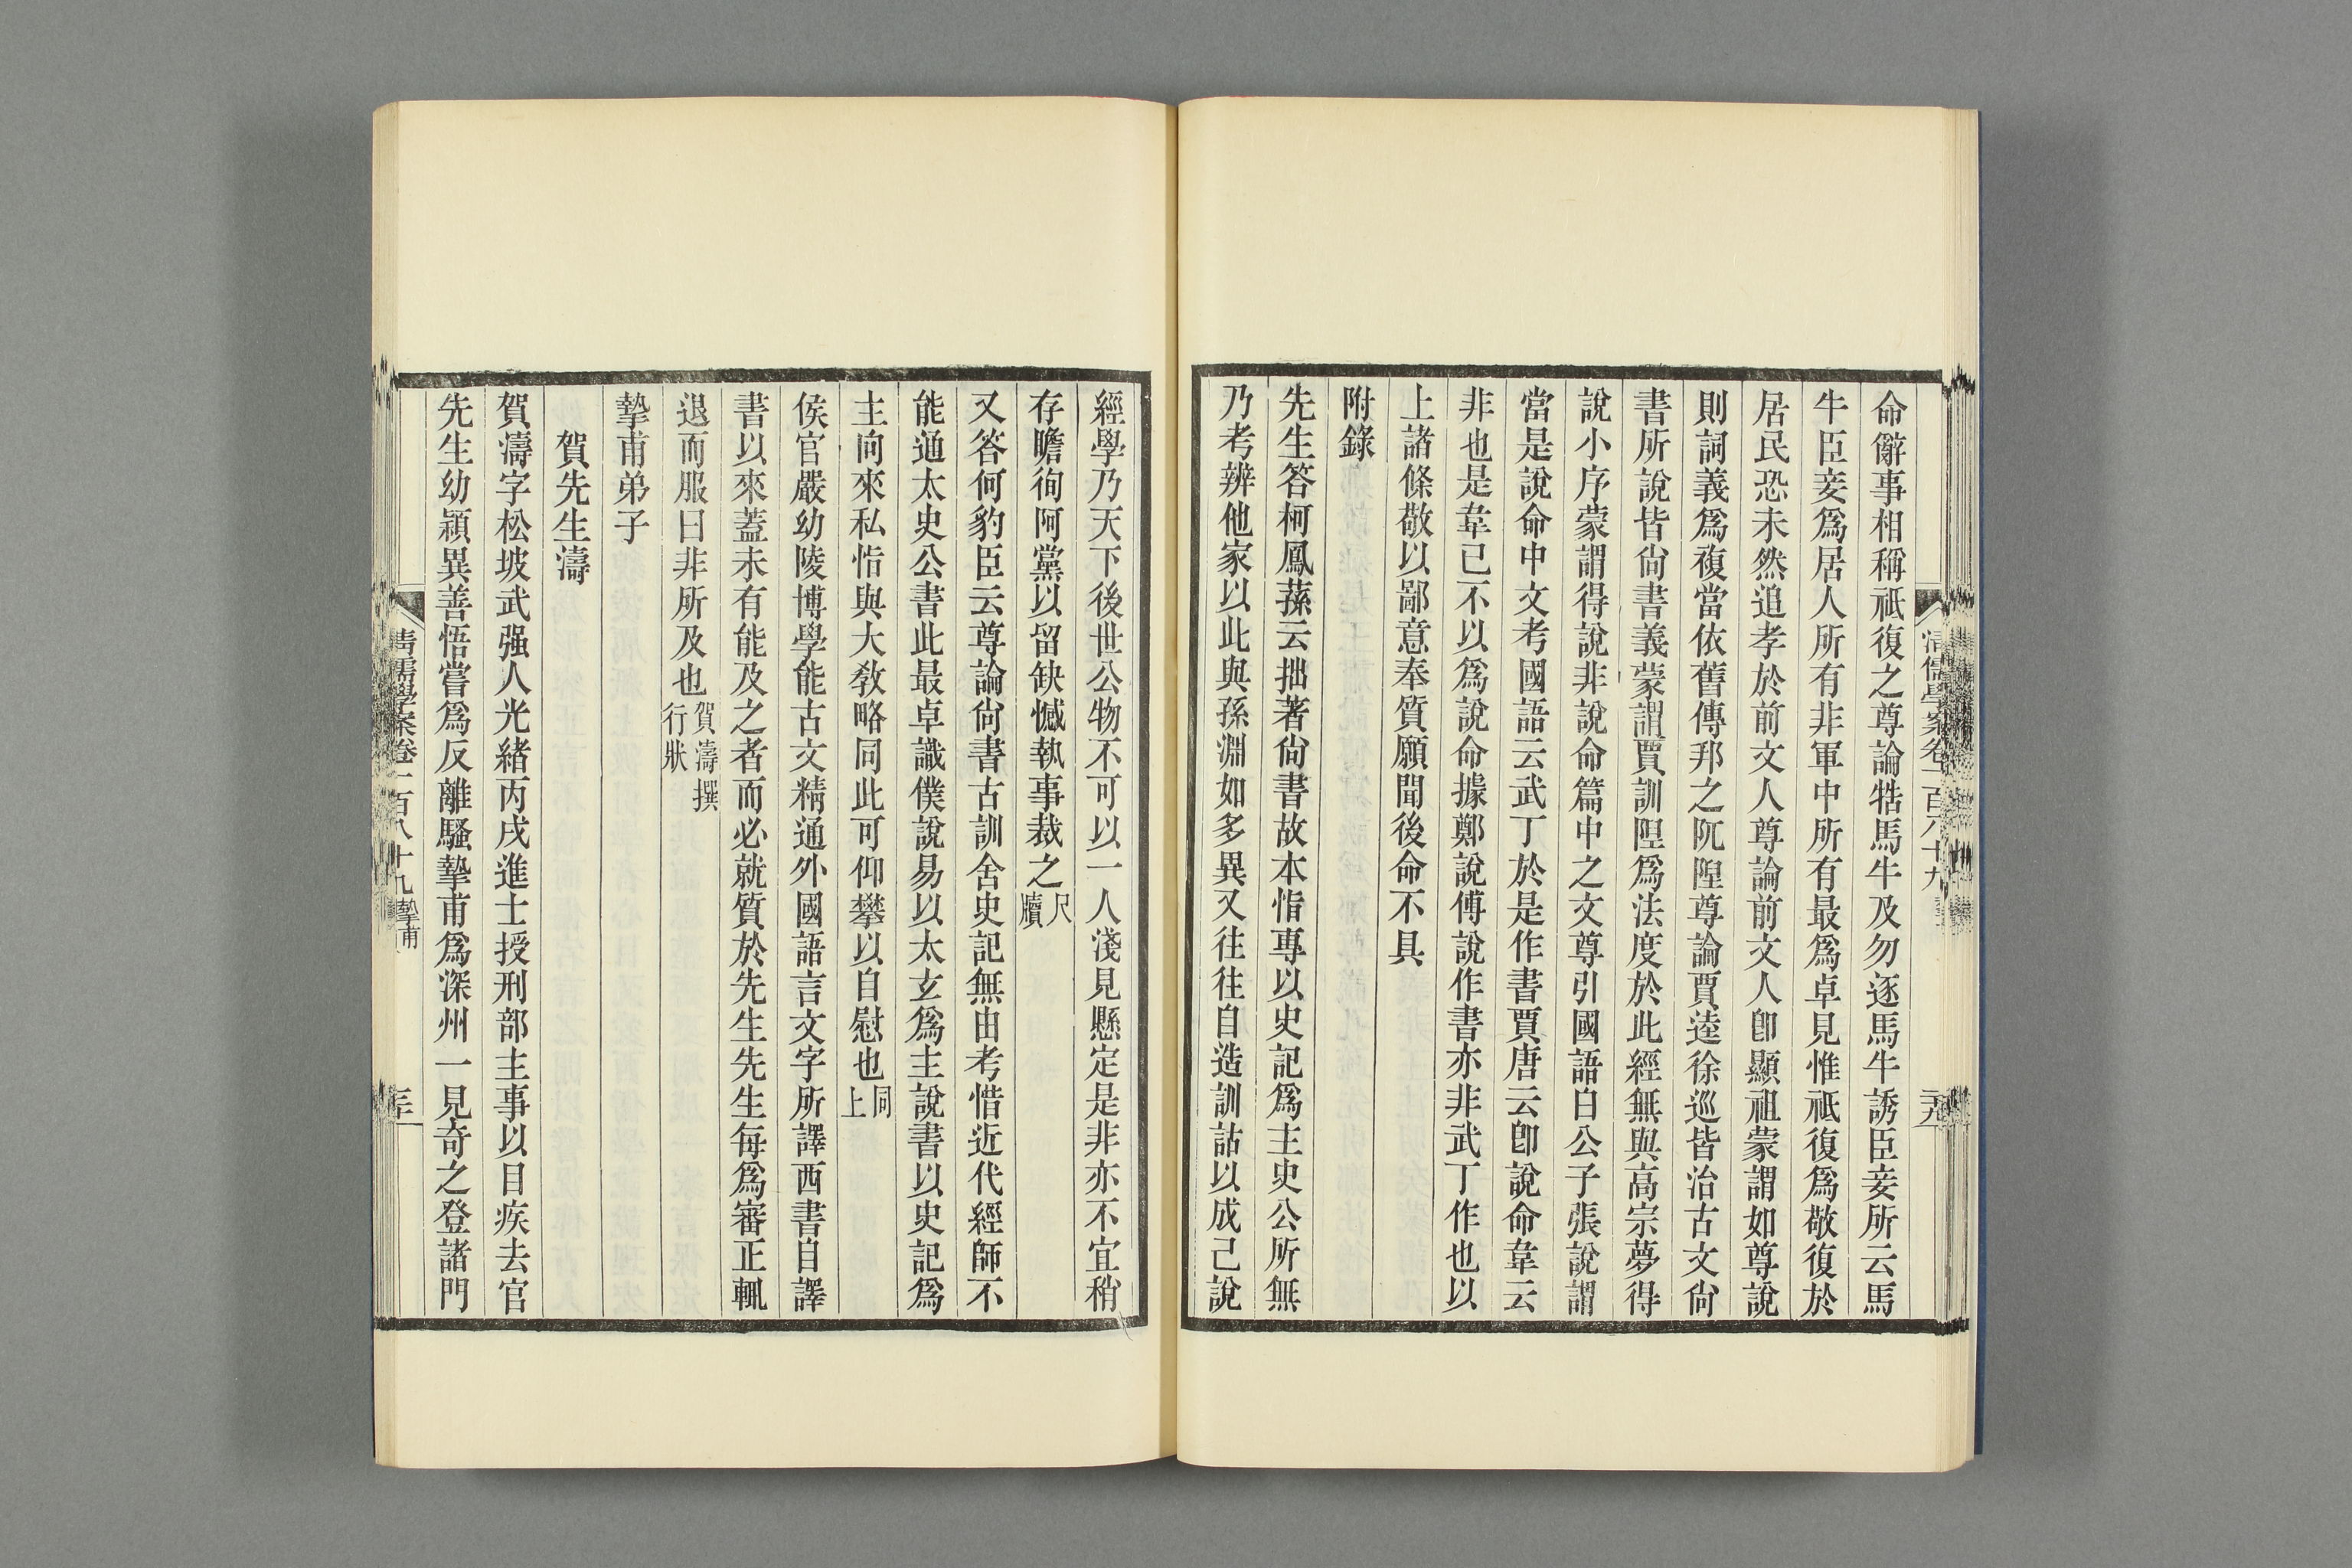 命辭事相稱祇復之尊論牿馬牛及勿逐馬牛誘臣妾所云馬
牛臣妾爲居人所有非軍中所有最爲卓見惟祇復爲敬復於
居民恐未然追孝於前文人尊論前文人卽顯祖蒙謂如尊說
則詞義爲複當依舊傳邦之阢隉尊論賈逵徐巡皆治古文尙
書所說皆尙書義蒙謂賈訓隉爲法度於此經無與高宗夢得
說小序蒙謂得說非說命篇中之文尊引國語白公子張說謂
當是說命中文考國語云武丁於是作書賈唐云卽說命韋云
非也是韋已不以爲說命據鄭說傅說作書亦非武丁作也以
上諸條敬以鄙意奉質願聞後命不具
附錄
先生答柯鳳蓀云拙著尙書故本恉專以史記爲主史公所無
乃考辨他家以此與孫淵如多異又往往自造訓詁以成己說
經學乃天下後世公物不可以一人淺見懸定是非亦不宜稍
存瞻徇阿黨以留缺憾執事裁之尺牘
又答何豹臣云尊論尙書古訓舍史記無由考惜近代經師不
能通太史公書此最卓識僕說易以太玄爲主說書以史記爲
主向來私恉與大敎略同此可仰攀以自慰也同上
侯官嚴幼陵博學能古文精通外國語言文字所譯西書自譯
書以來蓋未有能及之者而必就質於先生先生每爲審正輒
退而服曰非所及也賀濤撰行狀
摯甫弟子
賀先生濤
賀濤字松坡武强人光緖丙戌進士授刑部主事以目疾去官
先生幼穎異善悟嘗爲反離騷摯甫爲深州一見奇之登諸門
清儒學案卷一百八十九 摯甫